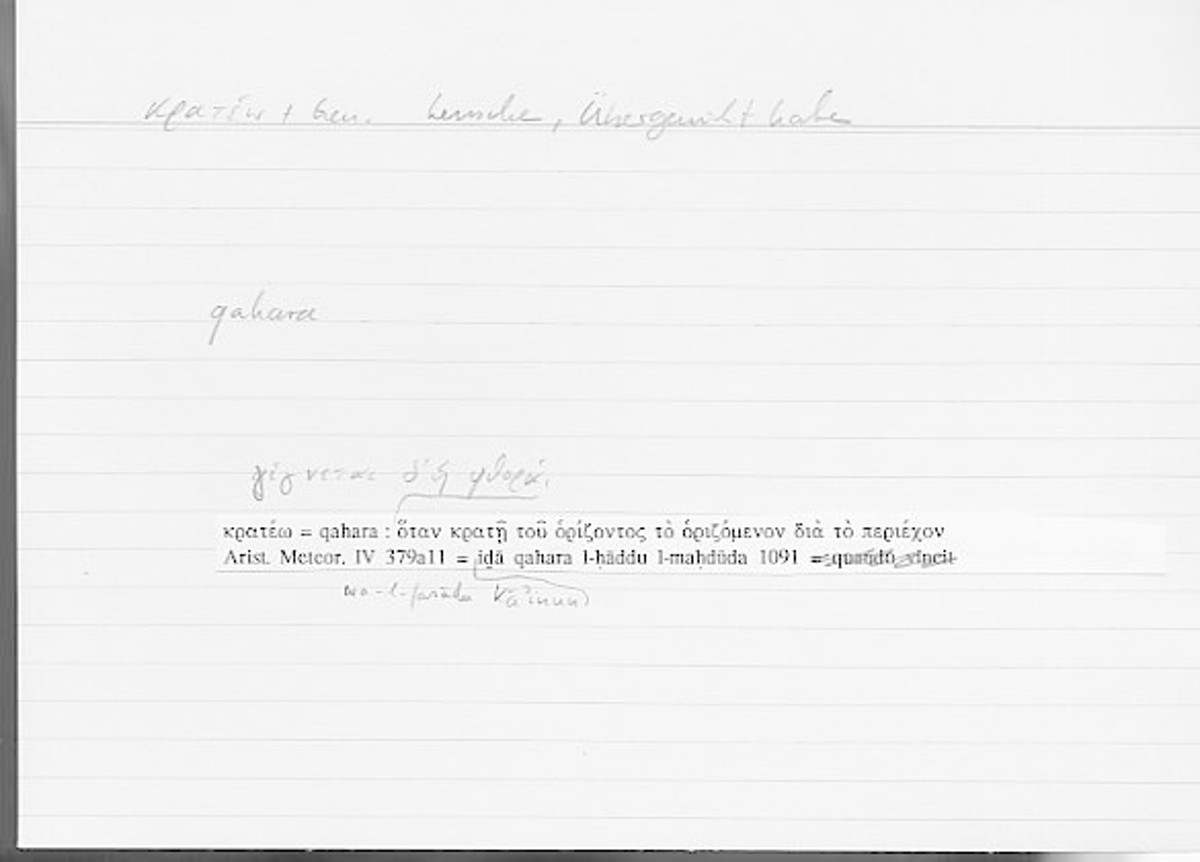 κρατέω + Gen. herrsche, Übergewicht habe
qahara
γίγνεται δ' ἡ φθορά,
κρατέω = qahara : ὅταν κρατῇ τοῦ ὁρίζοντος τὸ ὁριζόμενον διὰ τὸ περιέχον
Arist. Meteor. IV 379a11 = iḏā qahara l-ḥāddu l-maḥdūda 1091 = quando vincit
wa-l-fasādu kāʾinun